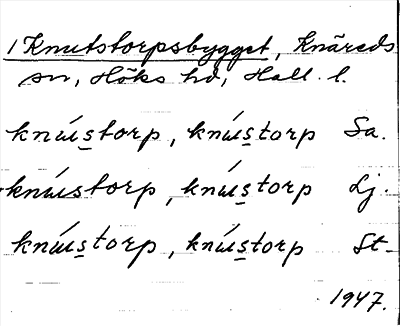 1 Knutstorpsbygget, Knäreds
sn, Höks hd, Hall. l.
knústorp, knústorp Sa.
knústorp, knústorp Lj.
knústorp, knústorp St.
1947.